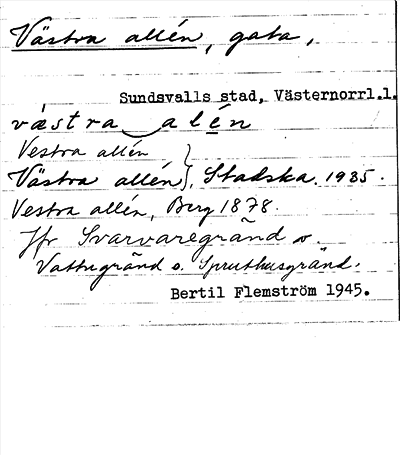 Västra allén, gata,
Sundsvalls stad, Västernorrl.l.
västra alén
Vestra allén
Västra allén}, Stadska. 1935.
Vestra allén, Berg 1878.
Jfr Svarvaregränd o.
Vattugränd o. Spruthusgränd.
Bertil Flemström 1945.